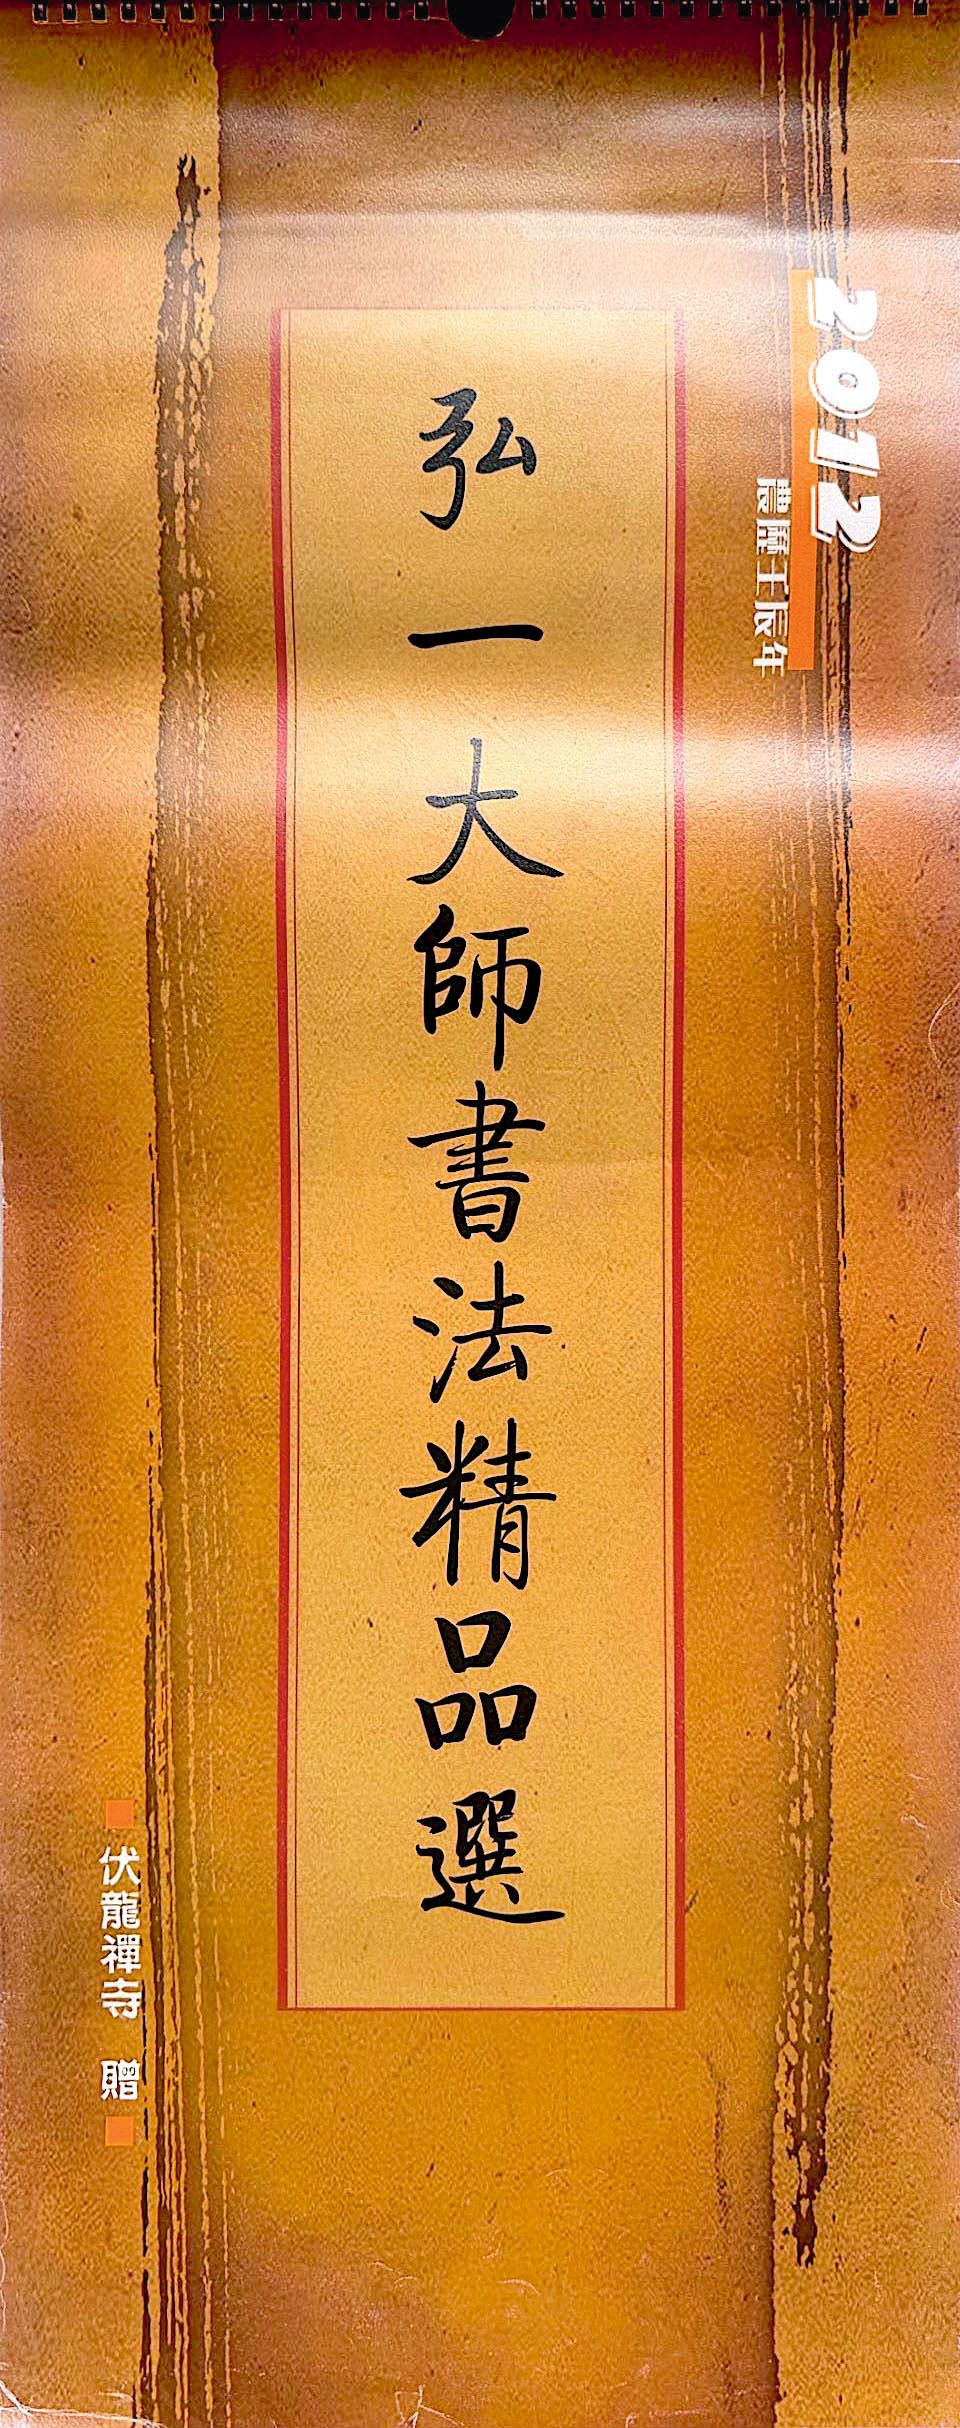 2012
農曆壬辰年
弘一大師書法精品選
伏龍禪寺 贈